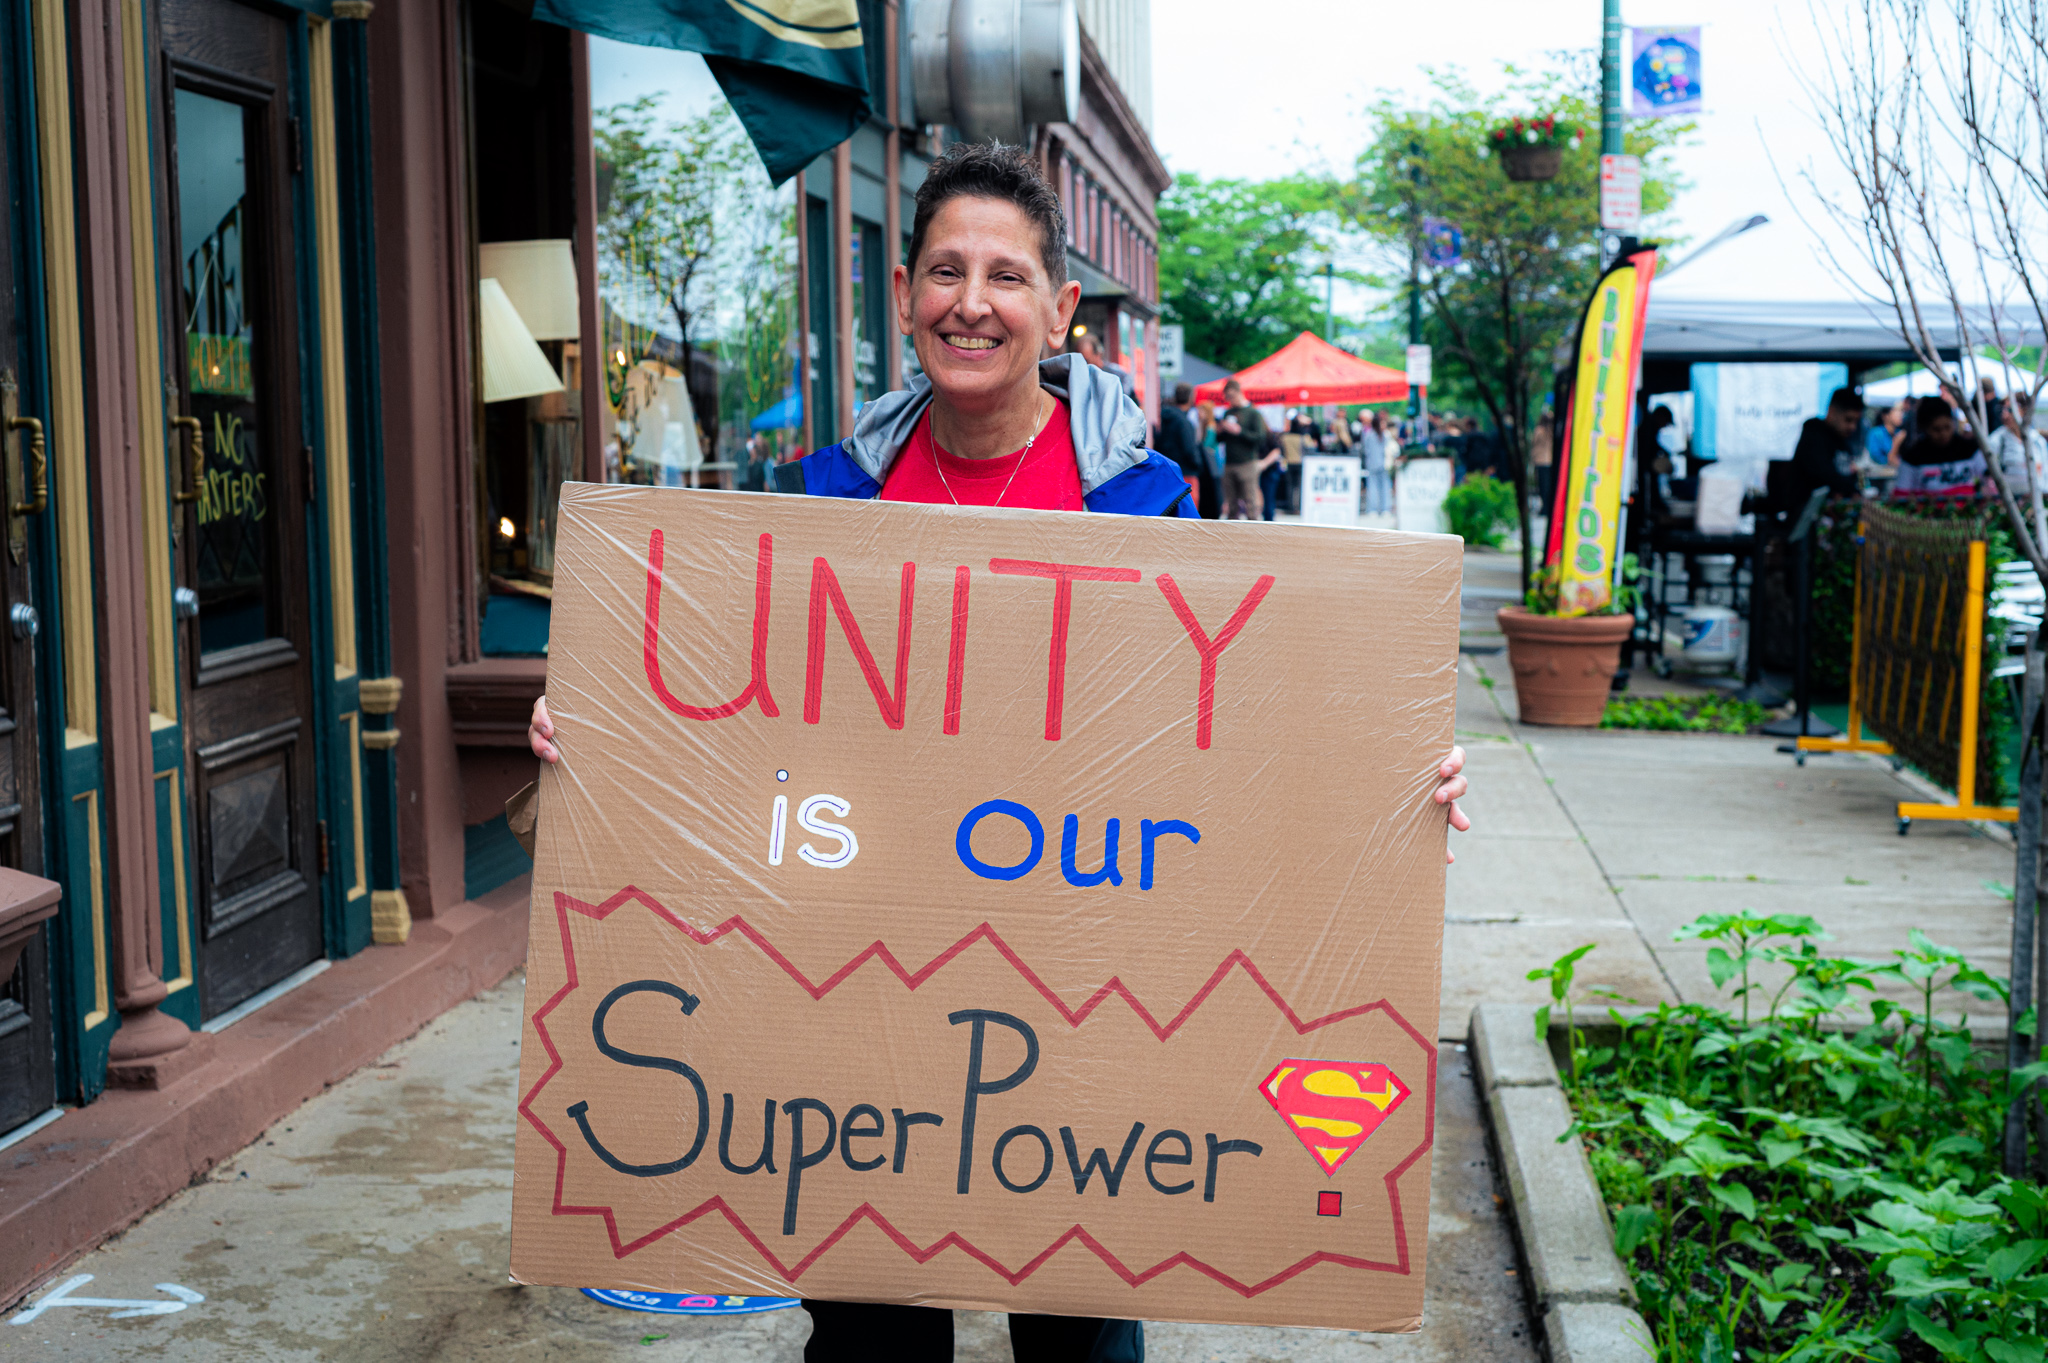 UNITY
is our
SuperPower
S
NO
MASTERS
OPEN
Burritos